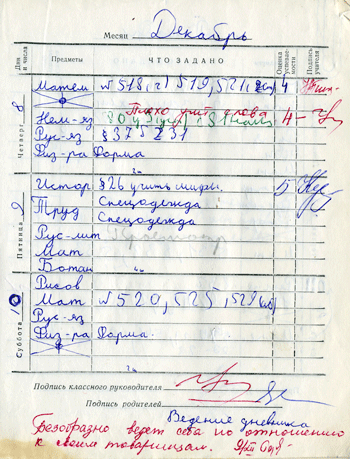 Месяц Декабрь
Дни и числа Предметы ЧТО ЗАДАНО Оценка успеваемости Подпись учителя
Четверг 8
Матем № 518, 519, 521, 4
Плохо учит слова
Нем-яз 4-
Рус-яз § 37 231
Физ-ра Форма
Пятница 9
Истор § 26 учить мифы. 5
Труд Спецодежда
Спецодежда
Рус-лит
Мат
Ботан
Суббота 10
Рисов
Мат № 520, 525, 528
Рус-яз
Физ-ра Форма.
Подпись классного руководителя
Подпись родителей
Ведение дневника
Безобразно ведет себя по отношению
к своим товарищам.